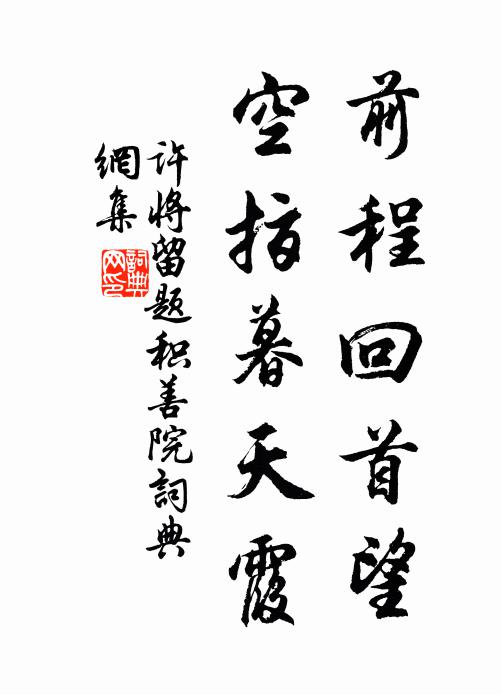 前程回首望
空指暮天霞
许将留题积善院詞典
網集
詞典
网印